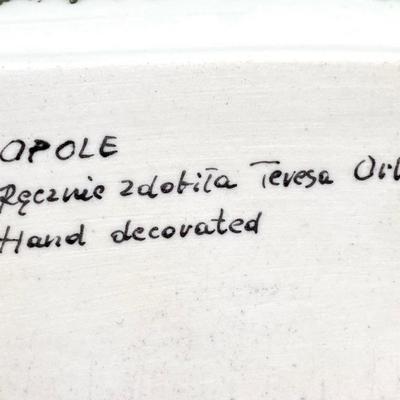 OPOLE
Ręcznie zdobiła Teresa
Hand decorated